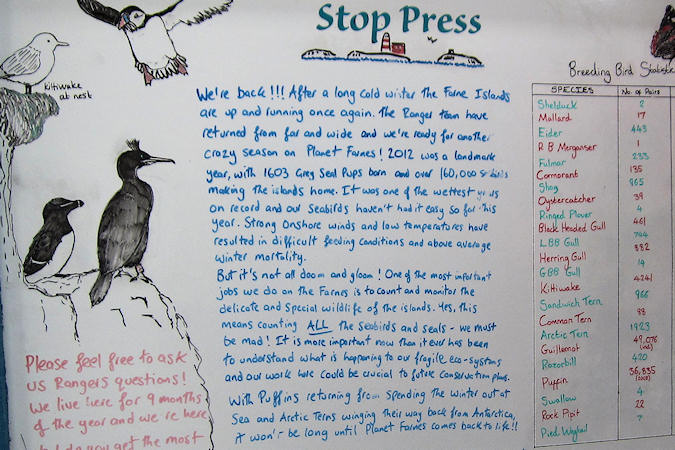 Stop Press
Kittiwake
at nest
We're back!!! After a long cold winter the Farne Islands
are up and running once again. The Ranger team have
returned from far and wide and we're ready for another
crazy season on Planet Farnes! 2012 was a landmark
year, with 1603 Grey Seal Pups born and over 160,000 seabirds
making the islands home. It was one of the wettest years
on record and our Seabirds haven't had it easy so far this
year. Strong Onshore winds and low temperatures have
resulted in difficult feeding conditions and above average
winter mortality.
But it's not all doom and gloom! One of the most important
jobs we do on the Farnes is to count and monitor the
delicate and special wildlife of the islands. Yes, this
means counting ALL the Seabirds and seals - we must
be mad! It is more important now than it ever has been
to understand what is happening to our fragile eco-systems
and our work here could be crucial to future conservation plans.
With Puffins returning from spending the winter out at
Sea and Arctic Terns winging their way back from Antarctica,
it won't be long until Planet Farnes comes back to life!!
Please feel free to ask
us Rangers questions!
We live here for 9 months
of the year and we're here
you get the most
Breeding Bird
SPECIES No. of Pairs
Shelduck 2
Mallard 17
Eider 443
R B Merganser 1
Fulmar 233
Cormorant 135
Shag 965
Oystercatcher 39
Ringed Plover 4
Black Headed Gull 461
LBB Gull 744
Herring Gull 882
GBB Gull 19
Kittiwake 4241
Sandwich Tern 966
Common Tern 88
Arctic Tern 1923
Guillemot 49,076 (ind)
Razorbill 420
Puffin 36,835
Swallow 4
Rock Pipit 22
Pied Wagtail 7